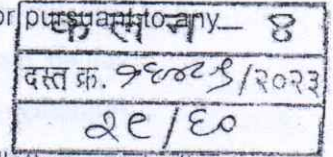 or pursuant to any
क ल न - ४
दस्त क्र. १६७२९/२०२३
२९/६०